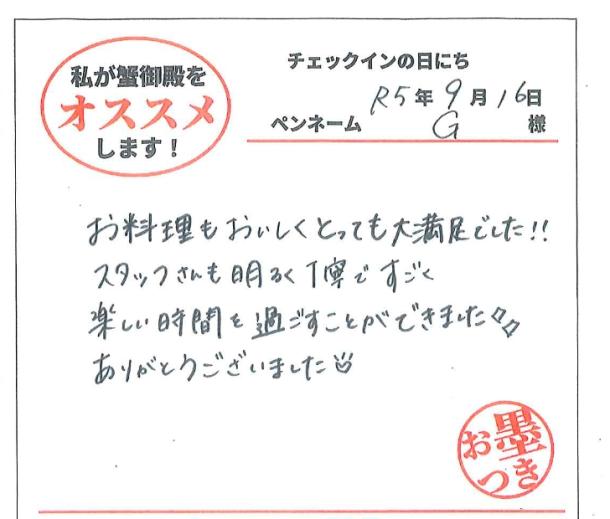 私が蟹御殿を
オススメ
します！
チェックインの日にち
R5年9月16日
ペンネーム G 様
お料理もおいしくとっても大満足でした!!
スタッフさんも明るく丁寧ですごく
楽しい時間を過ごすことができました
ありがとうございました
お墨
つき